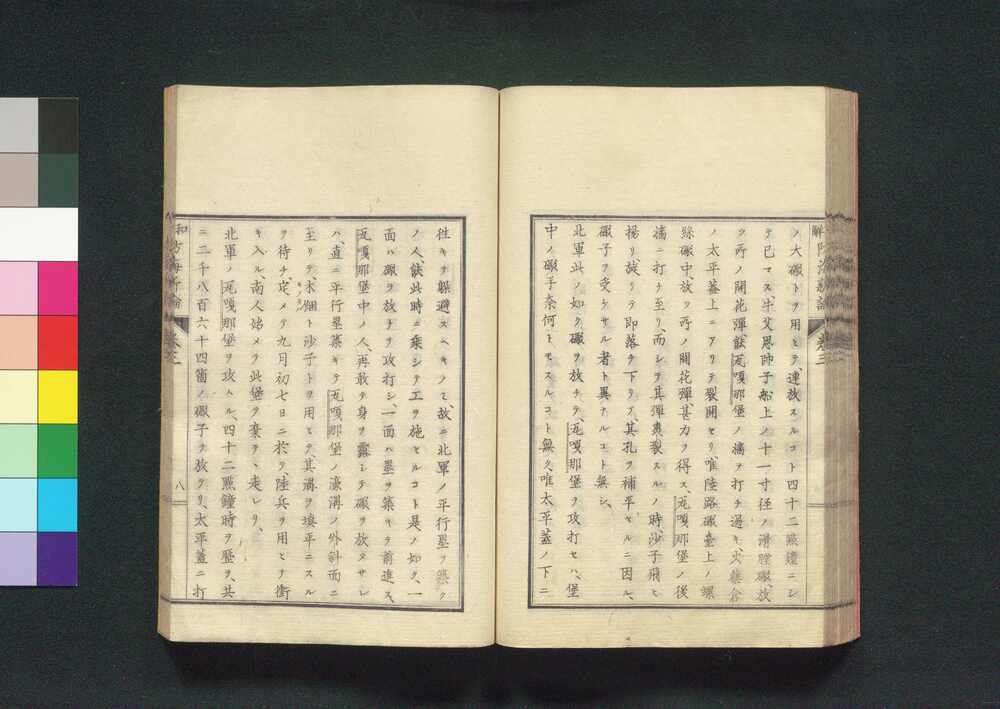 ノ大礮トヲ用ヒテ、連放スルコト四十二點鐘ニシ
テ已ム、マスニ、牛父恩師子船上ノ十一寸径ノ滑膛礮、放
ツ所ノ開花彈、獃瓦嘎那堡ノ墻ヲ打チ過キ、火藥倉
ノ太平蓋上ニアリテ裂開セリ、唯陸路礮臺上ノ螺
絲礮中、放ツ所ノ開花彈、甚力ヲ得ス、瓦嘎那堡ノ後
墻ニ打チ至リ、而シテ其彈爆裂スルノ時、沙子飛ヒ
揚リ旋リテ即落チ下リテ、其孔ヲ補平セルニ因ル、
礮子ヲ受ケサル者ト異ナルコト無シ、
北軍此ノ如ク礮ヲ放チテ、瓦嘎那堡ヲ攻打セハ、堡
中ノ礮手奈何トモスルコト無ク、唯太平蓋ノ下ニ
往キテ躱避スヘキノミ、故ニ北軍ノ平行壘ヲ築ク
ノ人、獃此時ニ乗シテ工ヲ施セルコト是ノ如ク、一
面ハ礮ヲ放チテ攻打シ、一面ハ壘ヲ築キテ前進ス、
瓦嘎那堡中ノ人、再敢テ身ヲ露シテ礮ヲ放タサレ
ハ、直ニ平行壘築キテ瓦嘎那堡ノ濠溝ノ外斜面ニ
至リテ、木捆ト沙子トヲ用ヒテ、其溝ヲ填平ニスル
ヲ待チ、定メテ九月初七日ニ於テ、陸兵ヲ用ヒテ衝
キ入ル、南人始メテ此堡ヲ棄テヽ走レリ、
北軍ノ瓦嘎那堡ヲ攻ムル、四十二點鐘時ヲ歴テ、共
ニ二千八百六十四箇ノ礮子ヲ放テリ、太平蓋ニ打
卷三
八